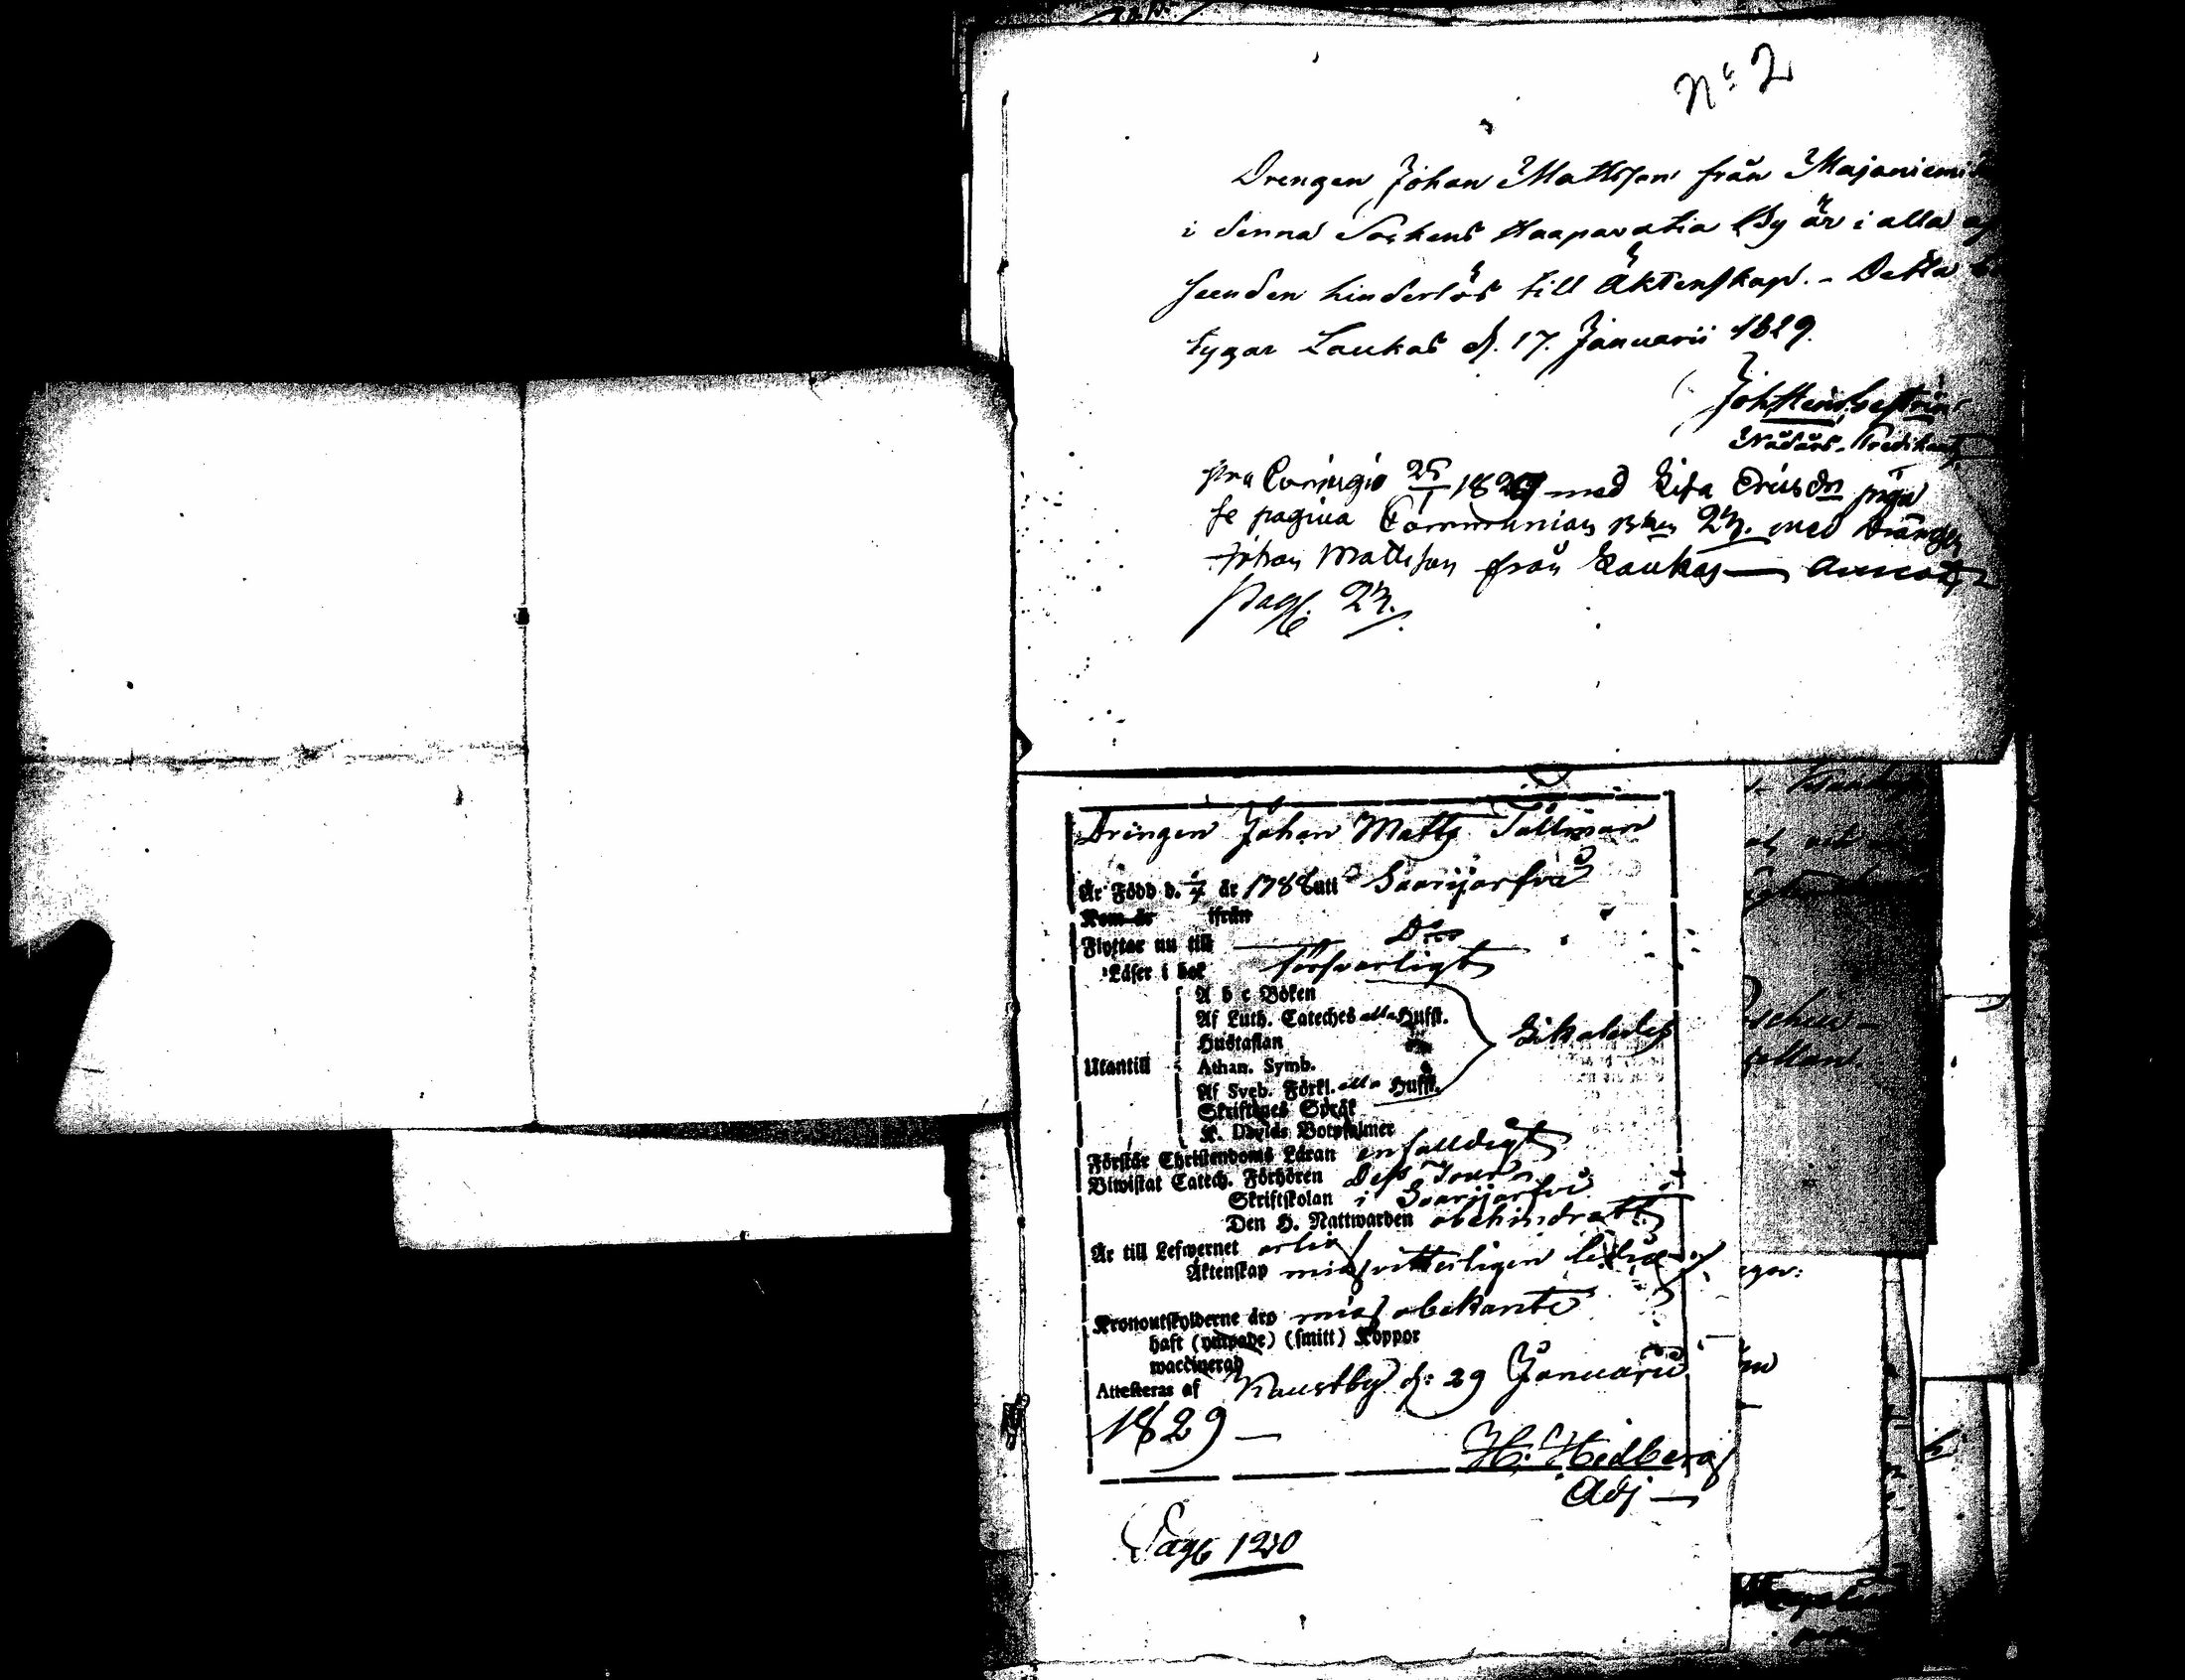 No 2
Drengen Johan Mattsson från Majaniemi
i denna Sockens Haapavatia By är i alla af
seenden hinderlös till Äktenskap. - Detta be
tygar Laukas d. 17. Januarii 1829.
Nådårs-Predikant
pro Coniugio 25/1 1829 med Lisa Ericsdr piga
se pagina Communion Bken 23. med Drängen
Johan Mattsson från Laukas
Pag. 23.
Drängen Johan Matts Tallman
Är Född d. 1/7 år 1788 utі Saarijärfvi
Kom år ifrån
Flyttar nu till D:o
Läser i bok försvarligt
A b c Boken
Af Luth. Cateches alla Hufst.
Hustaflan
Utantill
Athan. Symb.
Af Sveb. Förkl. alla Hufst.
Likaledes
Skriftenes Språk
K. Davids Botpsalmer
Förstår Christendoms Läran enfalldigt
Biwistat Catech. Förhören
Skriftskolan i Saarijärfvi
Den H. Nattwarden obehindradt
Är till Lefwernet ärlig
Äktenskap mig vitterligen ledig
Kronoutskylderne äro mig obekante
haft (ympade) (smitt) Koppor
waccinerad
Attesteras af Kaustby d: 29 Januarii
1829 —
H: Hedberg
Adj —
Pag 120